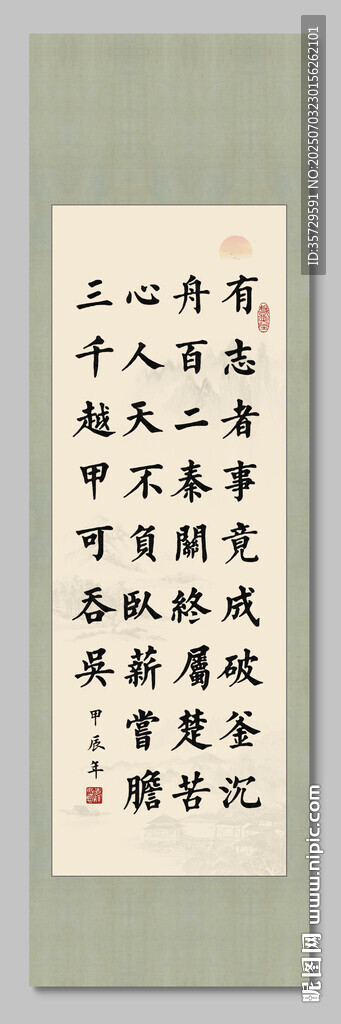 有志者事竟成破釜沉
舟百二秦關終屬楚苦
心人天不負臥薪嘗膽
三千越甲可吞吳
甲辰年
ID:35729591 NO:20250703230156262101
昵图网 www.nipic.com